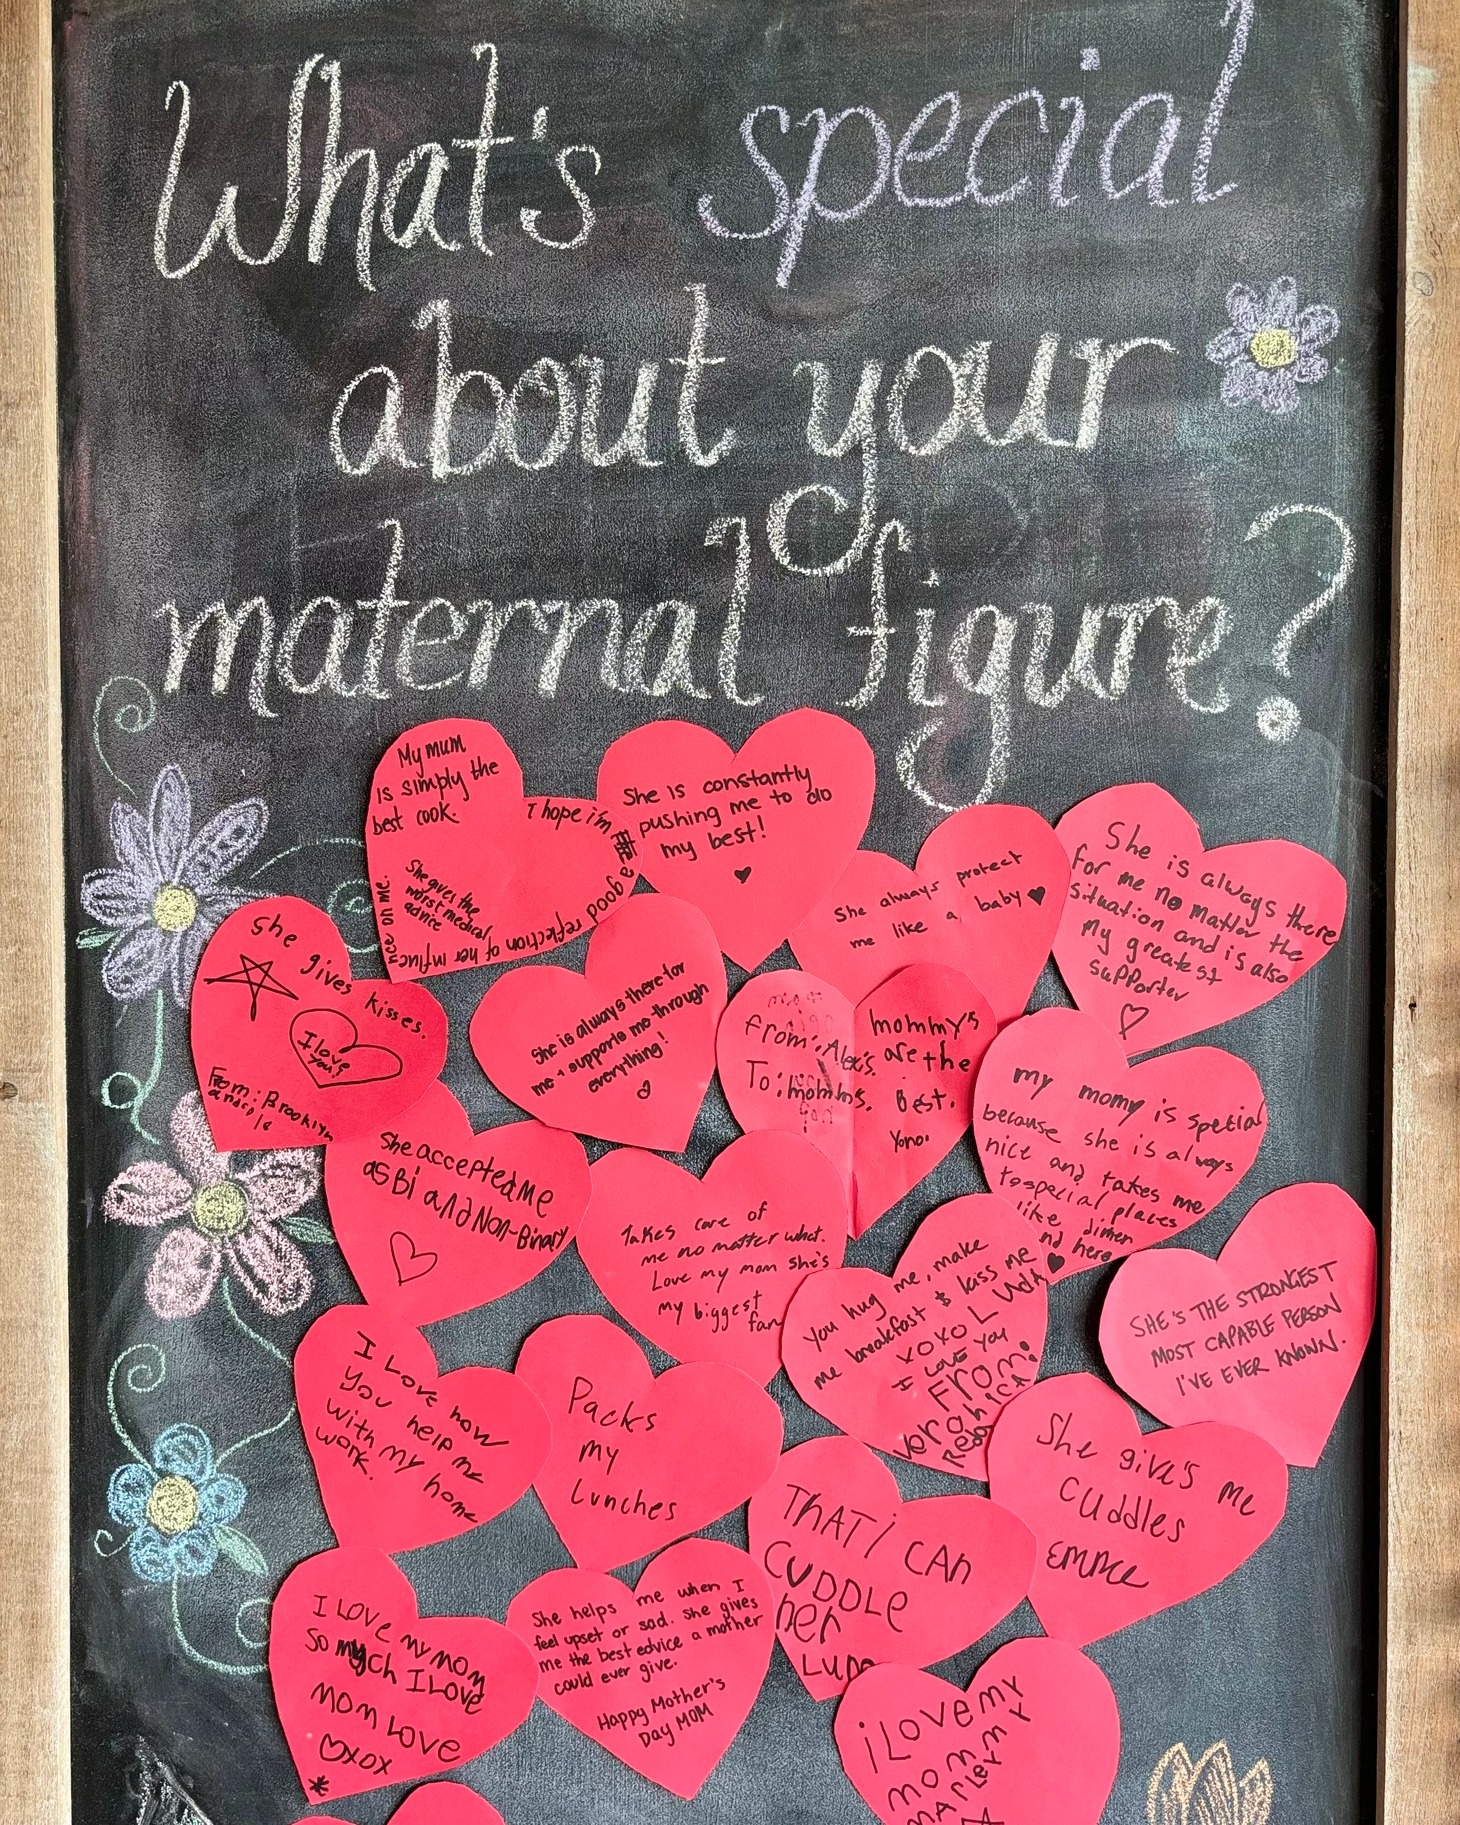 What's special
about your
maternal figure?
My mum
is simply the
best cook.
She gives the
worst medical
advice
I hope i'm
a good reflection of her influence on me.
She is constantly
pushing me to do
my best!
She always protect
me like a baby
She is always there
for me no matter the
situation and is also
my greatest
supporter
She
gives
kisses.
I love
you!
From: Brooklyn
She is always there for
me + supports me through
everything!
from: Alexis.
To: mommys.
mommy's
are the
Best.
Yono.
my momy is special
because she is always
nice and takes me
to special places
like dinner
nd here
She accepted me
as Bi and Non-Binary
Takes care of
me no matter what.
Love my mom she's
my biggest
fan
You hug me, make
me breakfast $ kiss me
XOXO L
I Love you
From:
veronica
SHE'S THE STRONGEST
MOST CAPABLE PERSON
I'VE EVER KNOWN.
I Love how
you help me
with my home
work.
Packs
my
Lunches
She give's me
cuddles
THAT i CAN
CUDDLe
her
I Love my mom
So much I Love
mom Love
xox
She helps me when I
feel upset or sad. She gives
me the best edvice a mother
could ever give.
Happy Mother's
Day MOM
i Love my
mommy